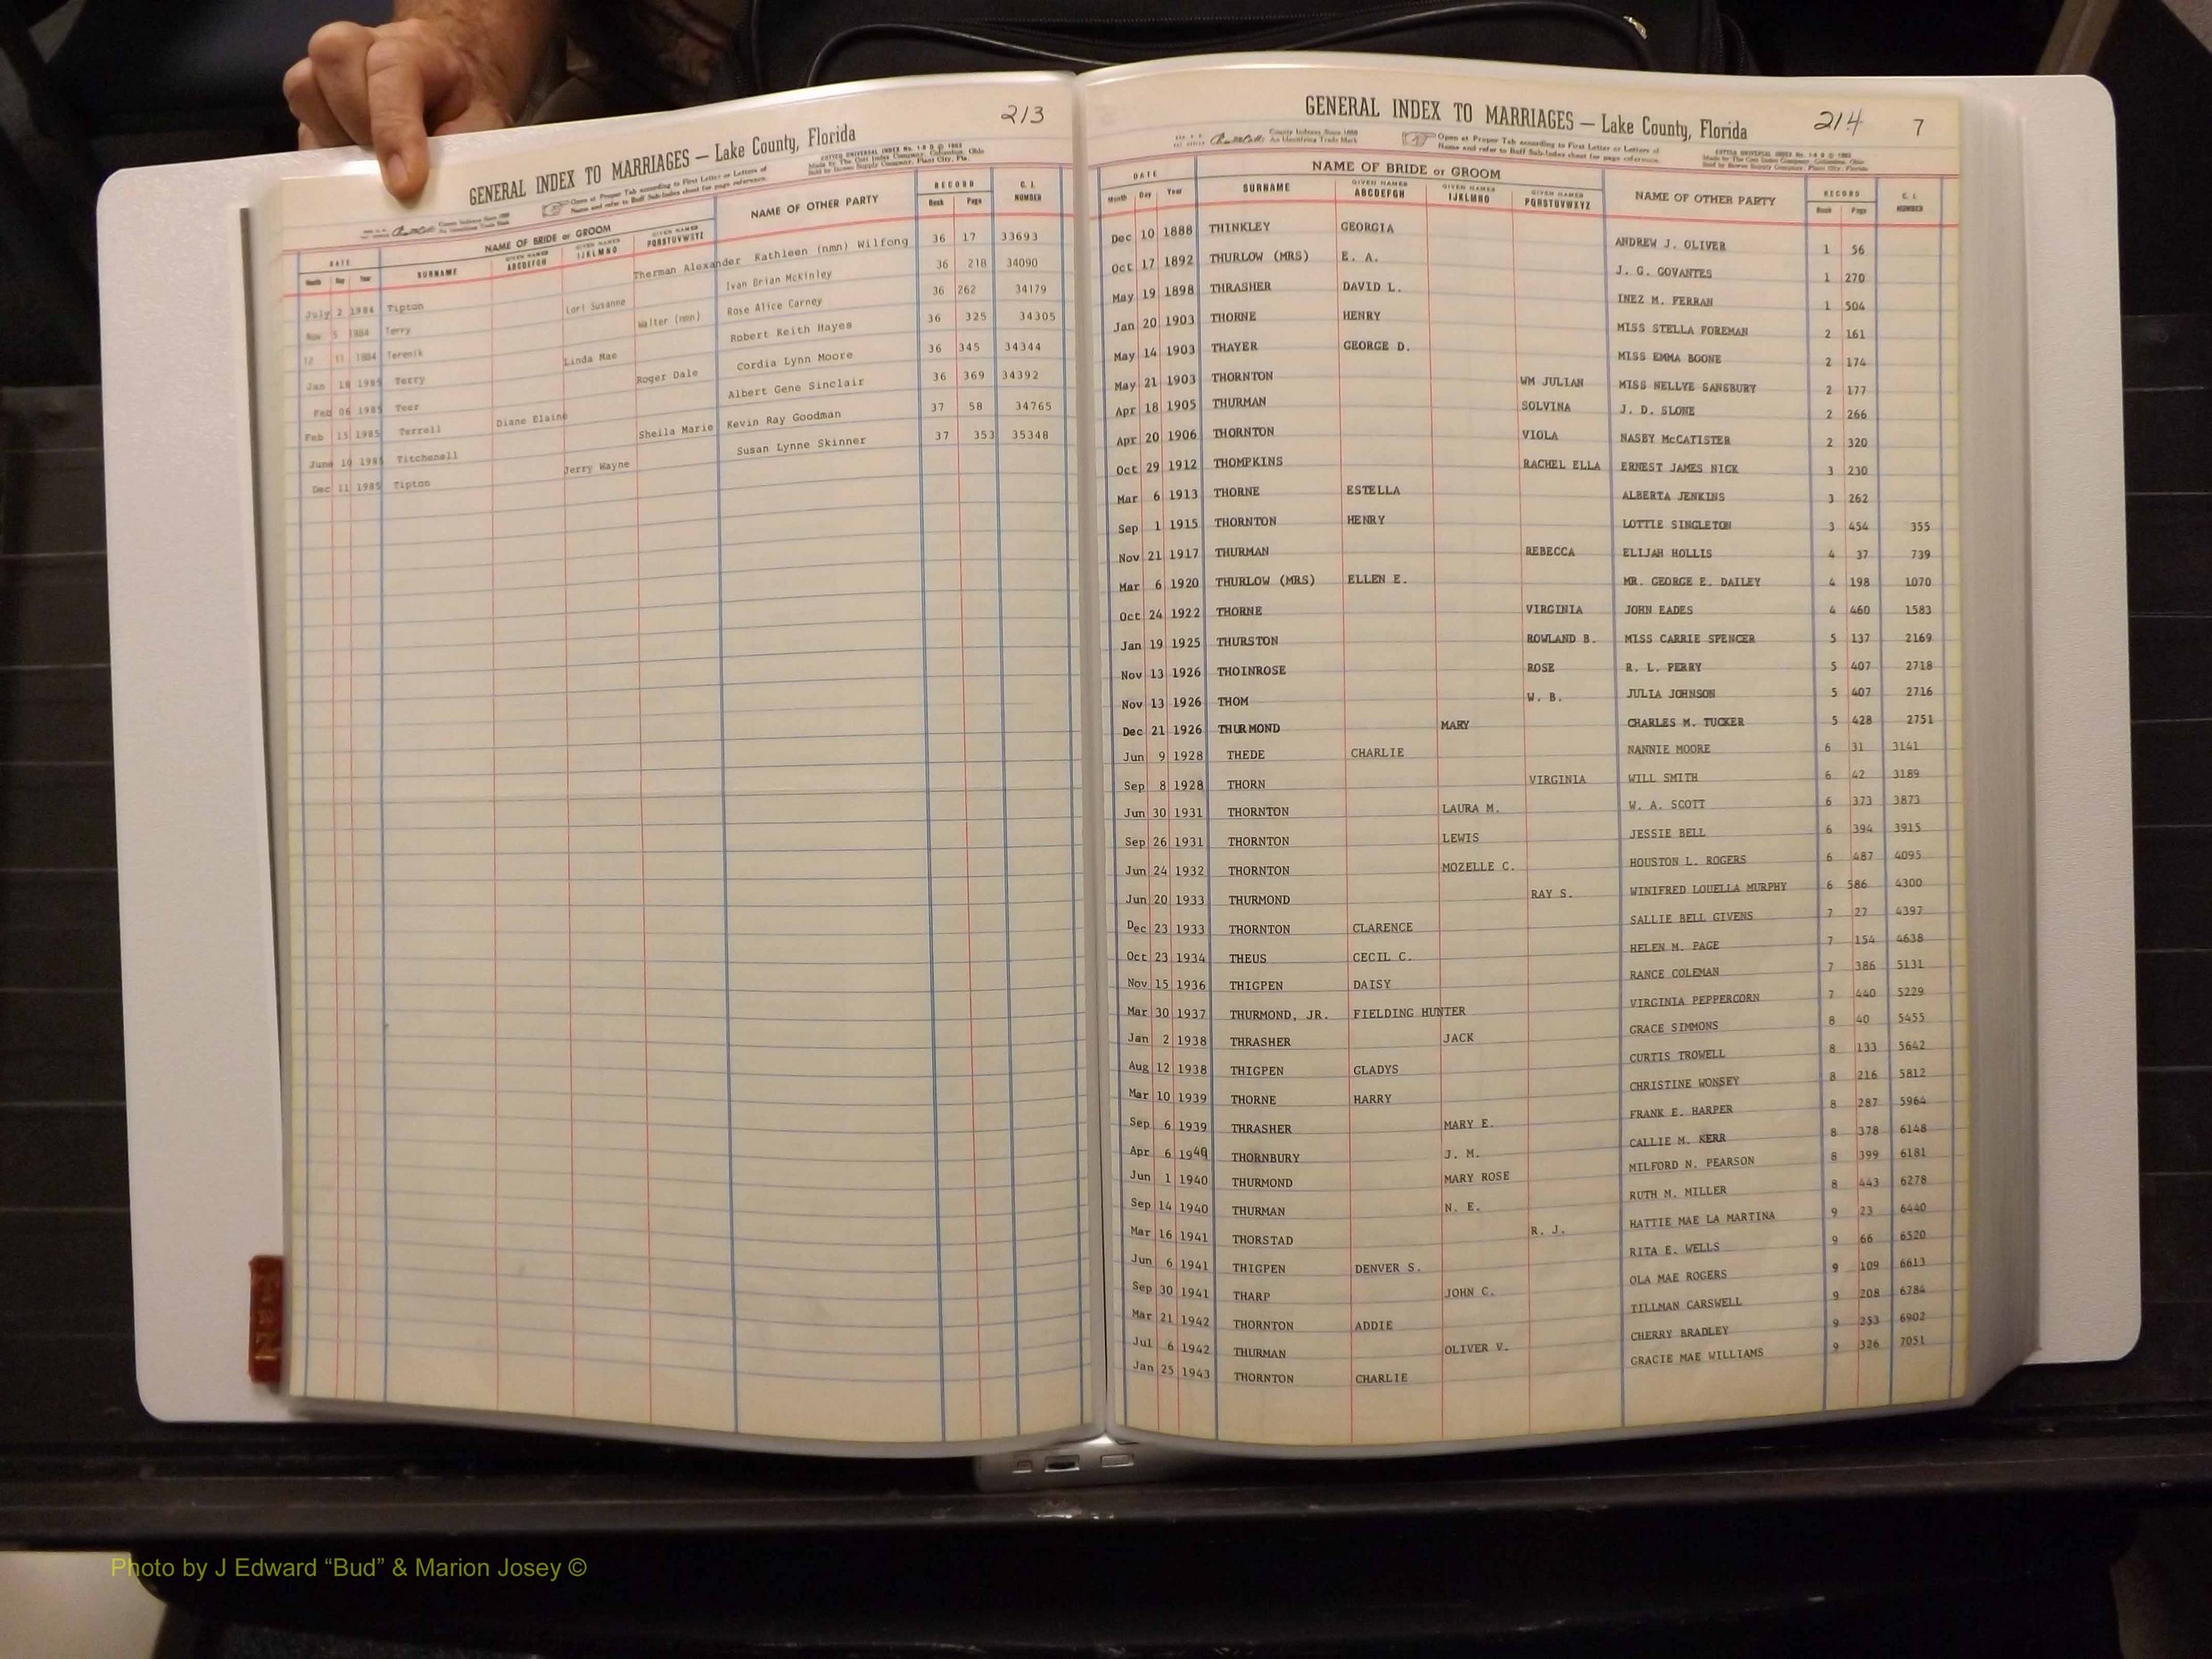 213
GENERAL INDEX TO MARRIAGES — Lake County, Florida
Open at Proper Tab according to First Letter or Letters of
Name and refer to Buff Sub-Index sheet for page reference.
DATE NAME OF BRIDE or GROOM NAME OF OTHER PARTY RECORD C. I.
Month Day Year SURNAME GIVEN NAMES ABCDEFGH GIVEN NAMES IJKLMNO GIVEN NAMES PQRSTUVWXYZ Book Page NUMBER
July 2 1984 Tipton Therman Alexander Kathleen (nmn) Wilfong 36 17 33693
Nov 5 1984 Terry Lori Susanne Ivan Brian McKinley 36 218 34090
12 11 1984 Teremik Walter (nmn) Rose Alice Carney 36 262 34179
Jan 18 1985 Terry Linda Mae Robert Keith Hayes 36 325 34305
Feb 06 1985 Teer Roger Dale Cordia Lynn Moore 36 345 34344
Feb 15 1985 Terrell Diane Elaine Albert Gene Sinclair 36 369 34392
June 10 1985 Titchenell Sheila Marie Kevin Ray Goodman 37 58 34765
Dec 11 1985 Tipton Jerry Wayne Susan Lynne Skinner 37 353 35348
214 7
GENERAL INDEX TO MARRIAGES — Lake County, Florida
County Indexes Since 1888
An Identifying Trade Mark
Open at Proper Tab according to First Letter or Letters of
Name and refer to Buff Sub-Index sheet for page reference.
DATE NAME OF BRIDE or GROOM NAME OF OTHER PARTY RECORD C. I.
Month Day Year SURNAME GIVEN NAMES ABCDEFGH GIVEN NAMES IJKLMNO GIVEN NAMES PQRSTUVWXYZ Book Page NUMBER
Dec 10 1888 THINKLEY GEORGIA ANDREW J. OLIVER 1 56
Oct 17 1892 THURLOW (MRS) E. A. J. G. GOVANTES 1 270
May 19 1898 THRASHER DAVID L. INEZ M. FERRAN 1 504
Jan 20 1903 THORNE HENRY MISS STELLA FOREMAN 2 161
May 14 1903 THAYER GEORGE D. MISS EMMA BOONE 2 174
May 21 1903 THORNTON WM JULIAN MISS NELLYE SANSBURY 2 177
Apr 18 1905 THURMAN SOLVINA J. D. SLONE 2 266
Apr 20 1906 THORNTON VIOLA NASBY McCATISTER 2 320
Oct 29 1912 THOMPKINS RACHEL ELLA ERNEST JAMES NICK 3 230
Mar 6 1913 THORNE ESTELLA ALBERTA JENKINS 3 262
Sep 1 1915 THORNTON HENRY LOTTIE SINGLETON 3 454 355
Nov 21 1917 THURMAN REBECCA ELIJAH HOLLIS 4 37 739
Mar 6 1920 THURLOW (MRS) ELLEN E. MR. GEORGE E. DAILEY 4 198 1070
Oct 24 1922 THORNE VIRGINIA JOHN EADES 4 460 1583
Jan 19 1925 THURSTON ROWLAND B. MISS CARRIE SPENCER 5 137 2169
Nov 13 1926 THOINROSE ROSE R. L. PERRY 5 407 2718
Nov 13 1926 THOM W. B. JULIA JOHNSON 5 407 2716
Dec 21 1926 THURMOND MARY CHARLES M. TUCKER 5 428 2751
Jun 9 1928 THEDE CHARLIE NANNIE MOORE 6 31 3141
Sep 8 1928 THORN VIRGINIA WILL SMITH 6 42 3189
Jun 30 1931 THORNTON LAURA M. W. A. SCOTT 6 373 3873
Sep 26 1931 THORNTON LEWIS JESSIE BELL 6 394 3915
Jun 24 1932 THORNTON MOZELLE C. HOUSTON L. ROGERS 6 487 4095
Jun 20 1933 THURMOND RAY S. WINIFRED LOUELLA MURPHY 6 586 4300
Dec 23 1933 THORNTON CLARENCE SALLIE BELL GIVENS 7 27 4397
Oct 23 1934 THEUS CECIL C. HELEN M. PAGE 7 154 4638
Nov 15 1936 THIGPEN DAISY RANCE COLEMAN 7 386 5131
Mar 30 1937 THURMOND, JR. FIELDING HUNTER VIRGINIA PEPPERCORN 7 440 5229
Jan 2 1938 THRASHER JACK GRACE SIMMONS 8 40 5455
Aug 12 1938 THIGPEN GLADYS CURTIS TROWELL 8 133 5642
Mar 10 1939 THORNE HARRY CHRISTINE WONSEY 8 216 5812
Sep 6 1939 THRASHER MARY E. FRANK E. HARPER 8 287 5964
Apr 6 1940 THORNBURY J. M. CALLIE M. KERR 8 378 6148
Jun 1 1940 THURMOND MARY ROSE MILFORD N. PEARSON 8 399 6181
Sep 14 1940 THURMAN N. E. RUTH M. MILLER 8 443 6278
Mar 16 1941 THORSTAD R. J. HATTIE MAE LA MARTINA 9 23 6440
Jun 6 1941 THIGPEN DENVER S. RITA E. WELLS 9 66 6520
Sep 30 1941 THARP JOHN C. OLA MAE ROGERS 9 109 6613
Mar 21 1942 THORNTON ADDIE TILLMAN CARSWELL 9 208 6784
Jul 6 1942 THURMAN OLIVER V. CHERRY BRADLEY 9 253 6902
Jan 25 1943 THORNTON CHARLIE GRACIE MAE WILLIAMS 9 326 7051
Photo by J Edward “Bud” & Marion Josey ©